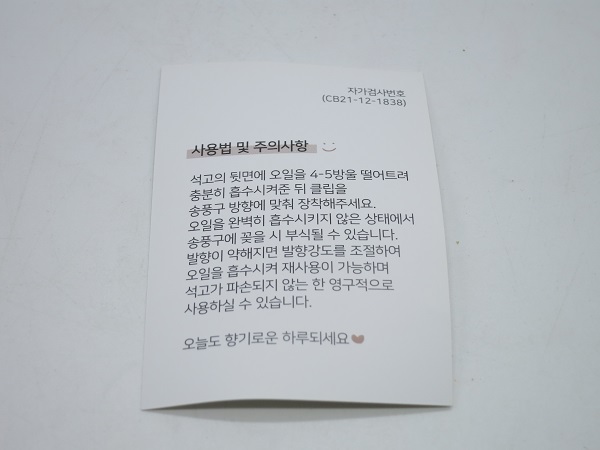 자가검사번호
(CB21-12-1838)
사용법 및 주의사항
석고의 뒷면에 오일을 4-5방울 떨어트려
충분히 흡수시켜준 뒤 클립을
송풍구 방향에 맞춰 장착해주세요.
오일을 완벽히 흡수시키지 않은 상태에서
송풍구에 꽂을 시 부식될 수 있습니다.
발향이 약해지면 발향강도를 조절하여
오일을 흡수시켜 재사용이 가능하며
석고가 파손되지 않는 한 영구적으로
사용하실 수 있습니다.
오늘도 향기로운 하루되세요